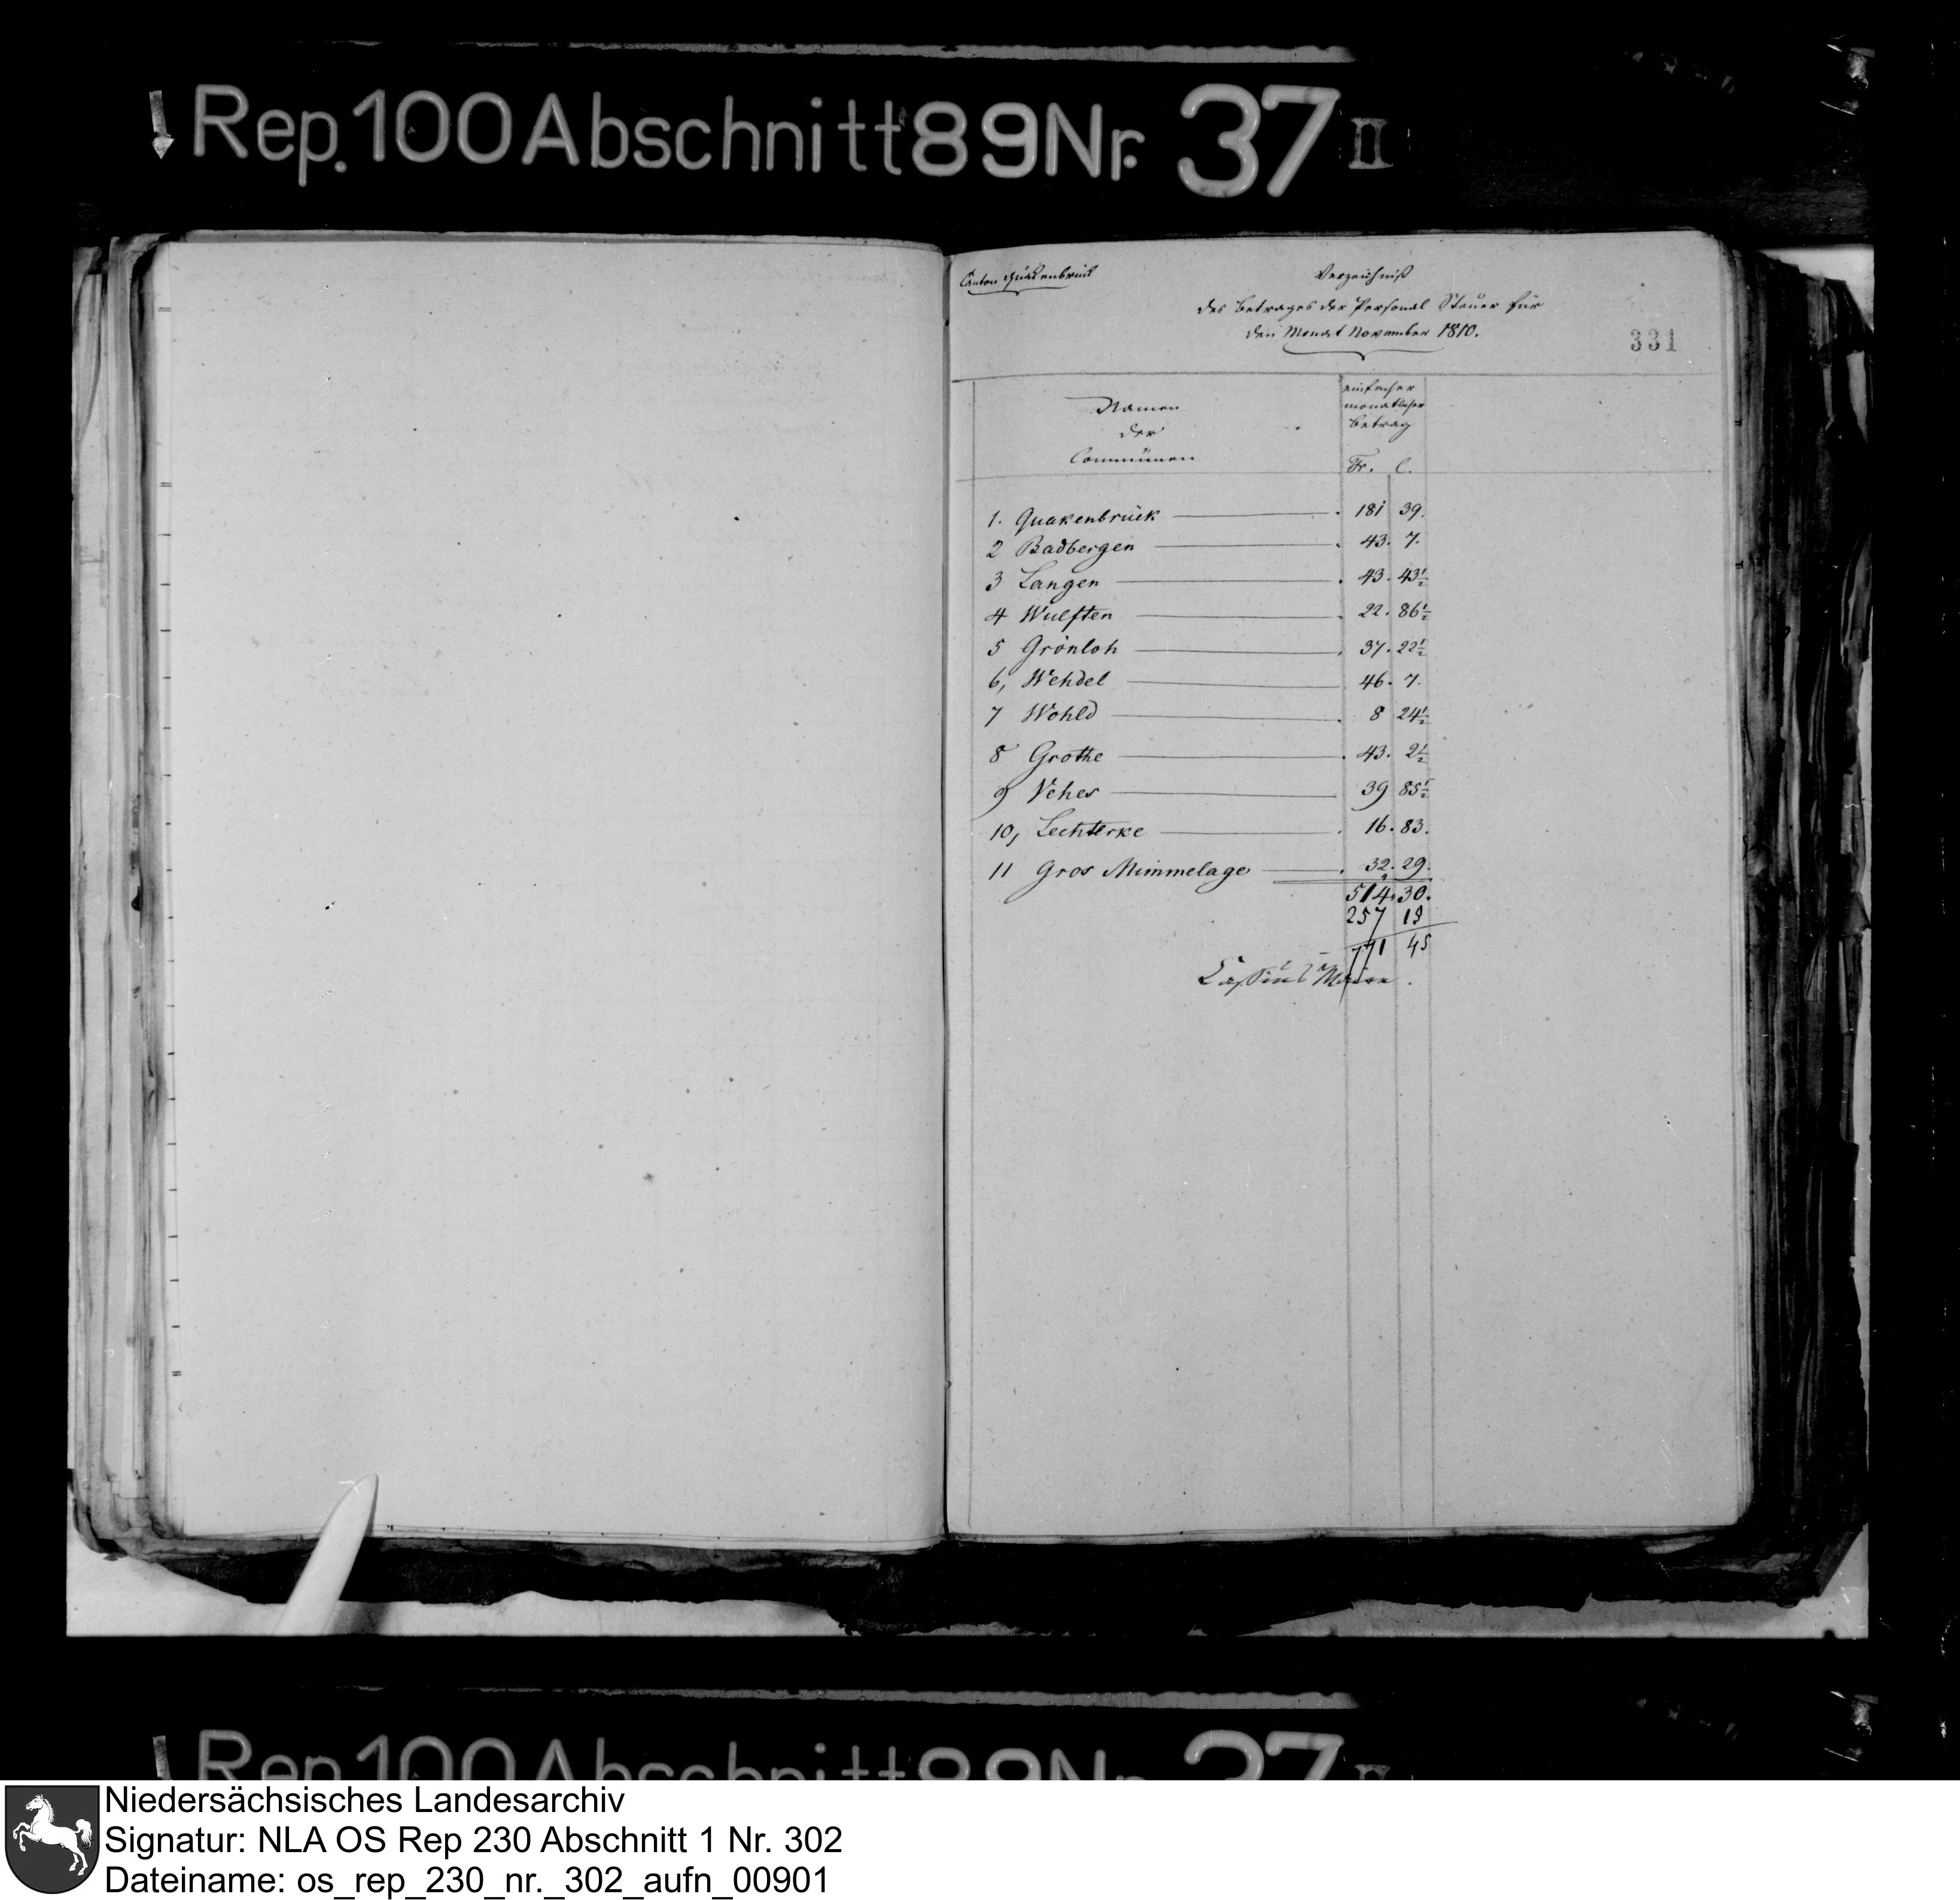 Rep. 100 Abschnitt 89 Nr. 37 II
Canton Quakenbrück
Verzeichniß
des Betrages der Personal Steuer für
den Monat November 1810.
331
Namen
der
Communen
einfacher
monatlicher
Betrag
Fr. C.
1. Quakenbrück 181 39.
2 Badbergen 43. 7.
3 Langen 43. 43½
4 Wulften 22. 86½
5 Grönloh 37. 22½
6, Wehdel 46. 7.
7 Wohld 8 24½
8 Grothe 43. 2½
9 Vehes 39 85½
10, Lechterke 16. 83.
11 Gros Mimmelage 32. 29.
514. 30.
257 15
771 45
Maire.
Rep. 100 Abschnitt 89 Nr. 37 II
Niedersächsisches Landesarchiv
Signatur: NLA OS Rep 230 Abschnitt 1 Nr. 302
Dateiname: os_rep_230_nr._302_aufn_00901